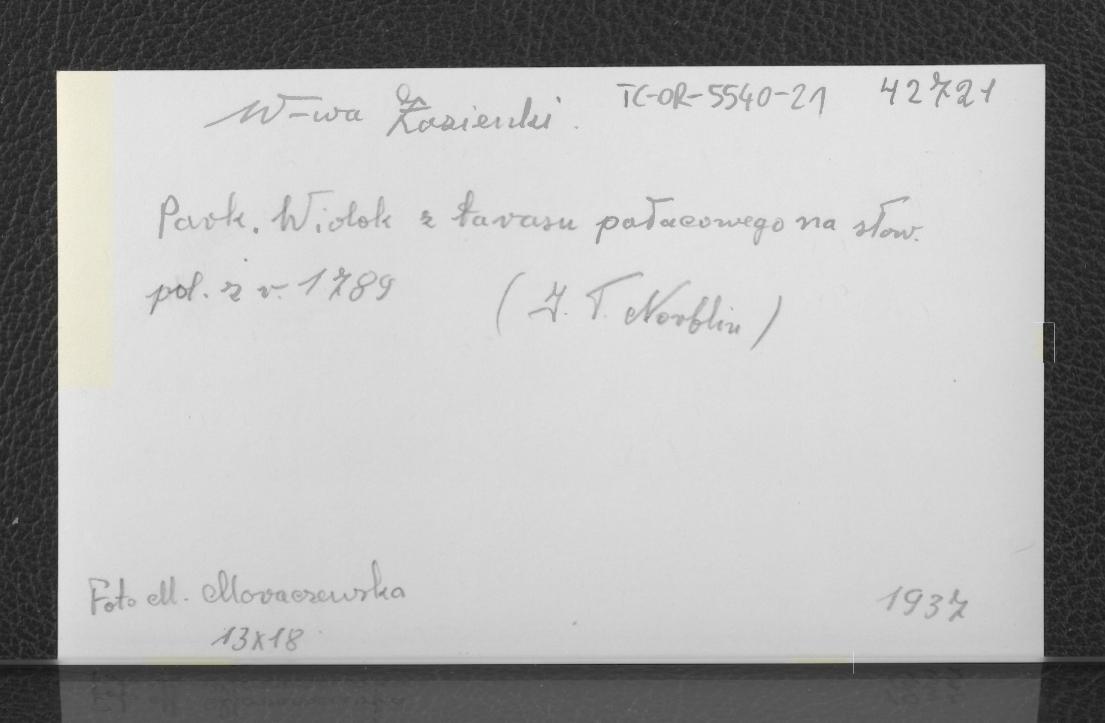 W-wa Łazienki. TC-OR-5540-21 42721
Park. Widok z tarasu pałacowego na płn.
pol. z r. 1789 (J. T. Norblin)
Foto M. Moraczewska 1937
13x18